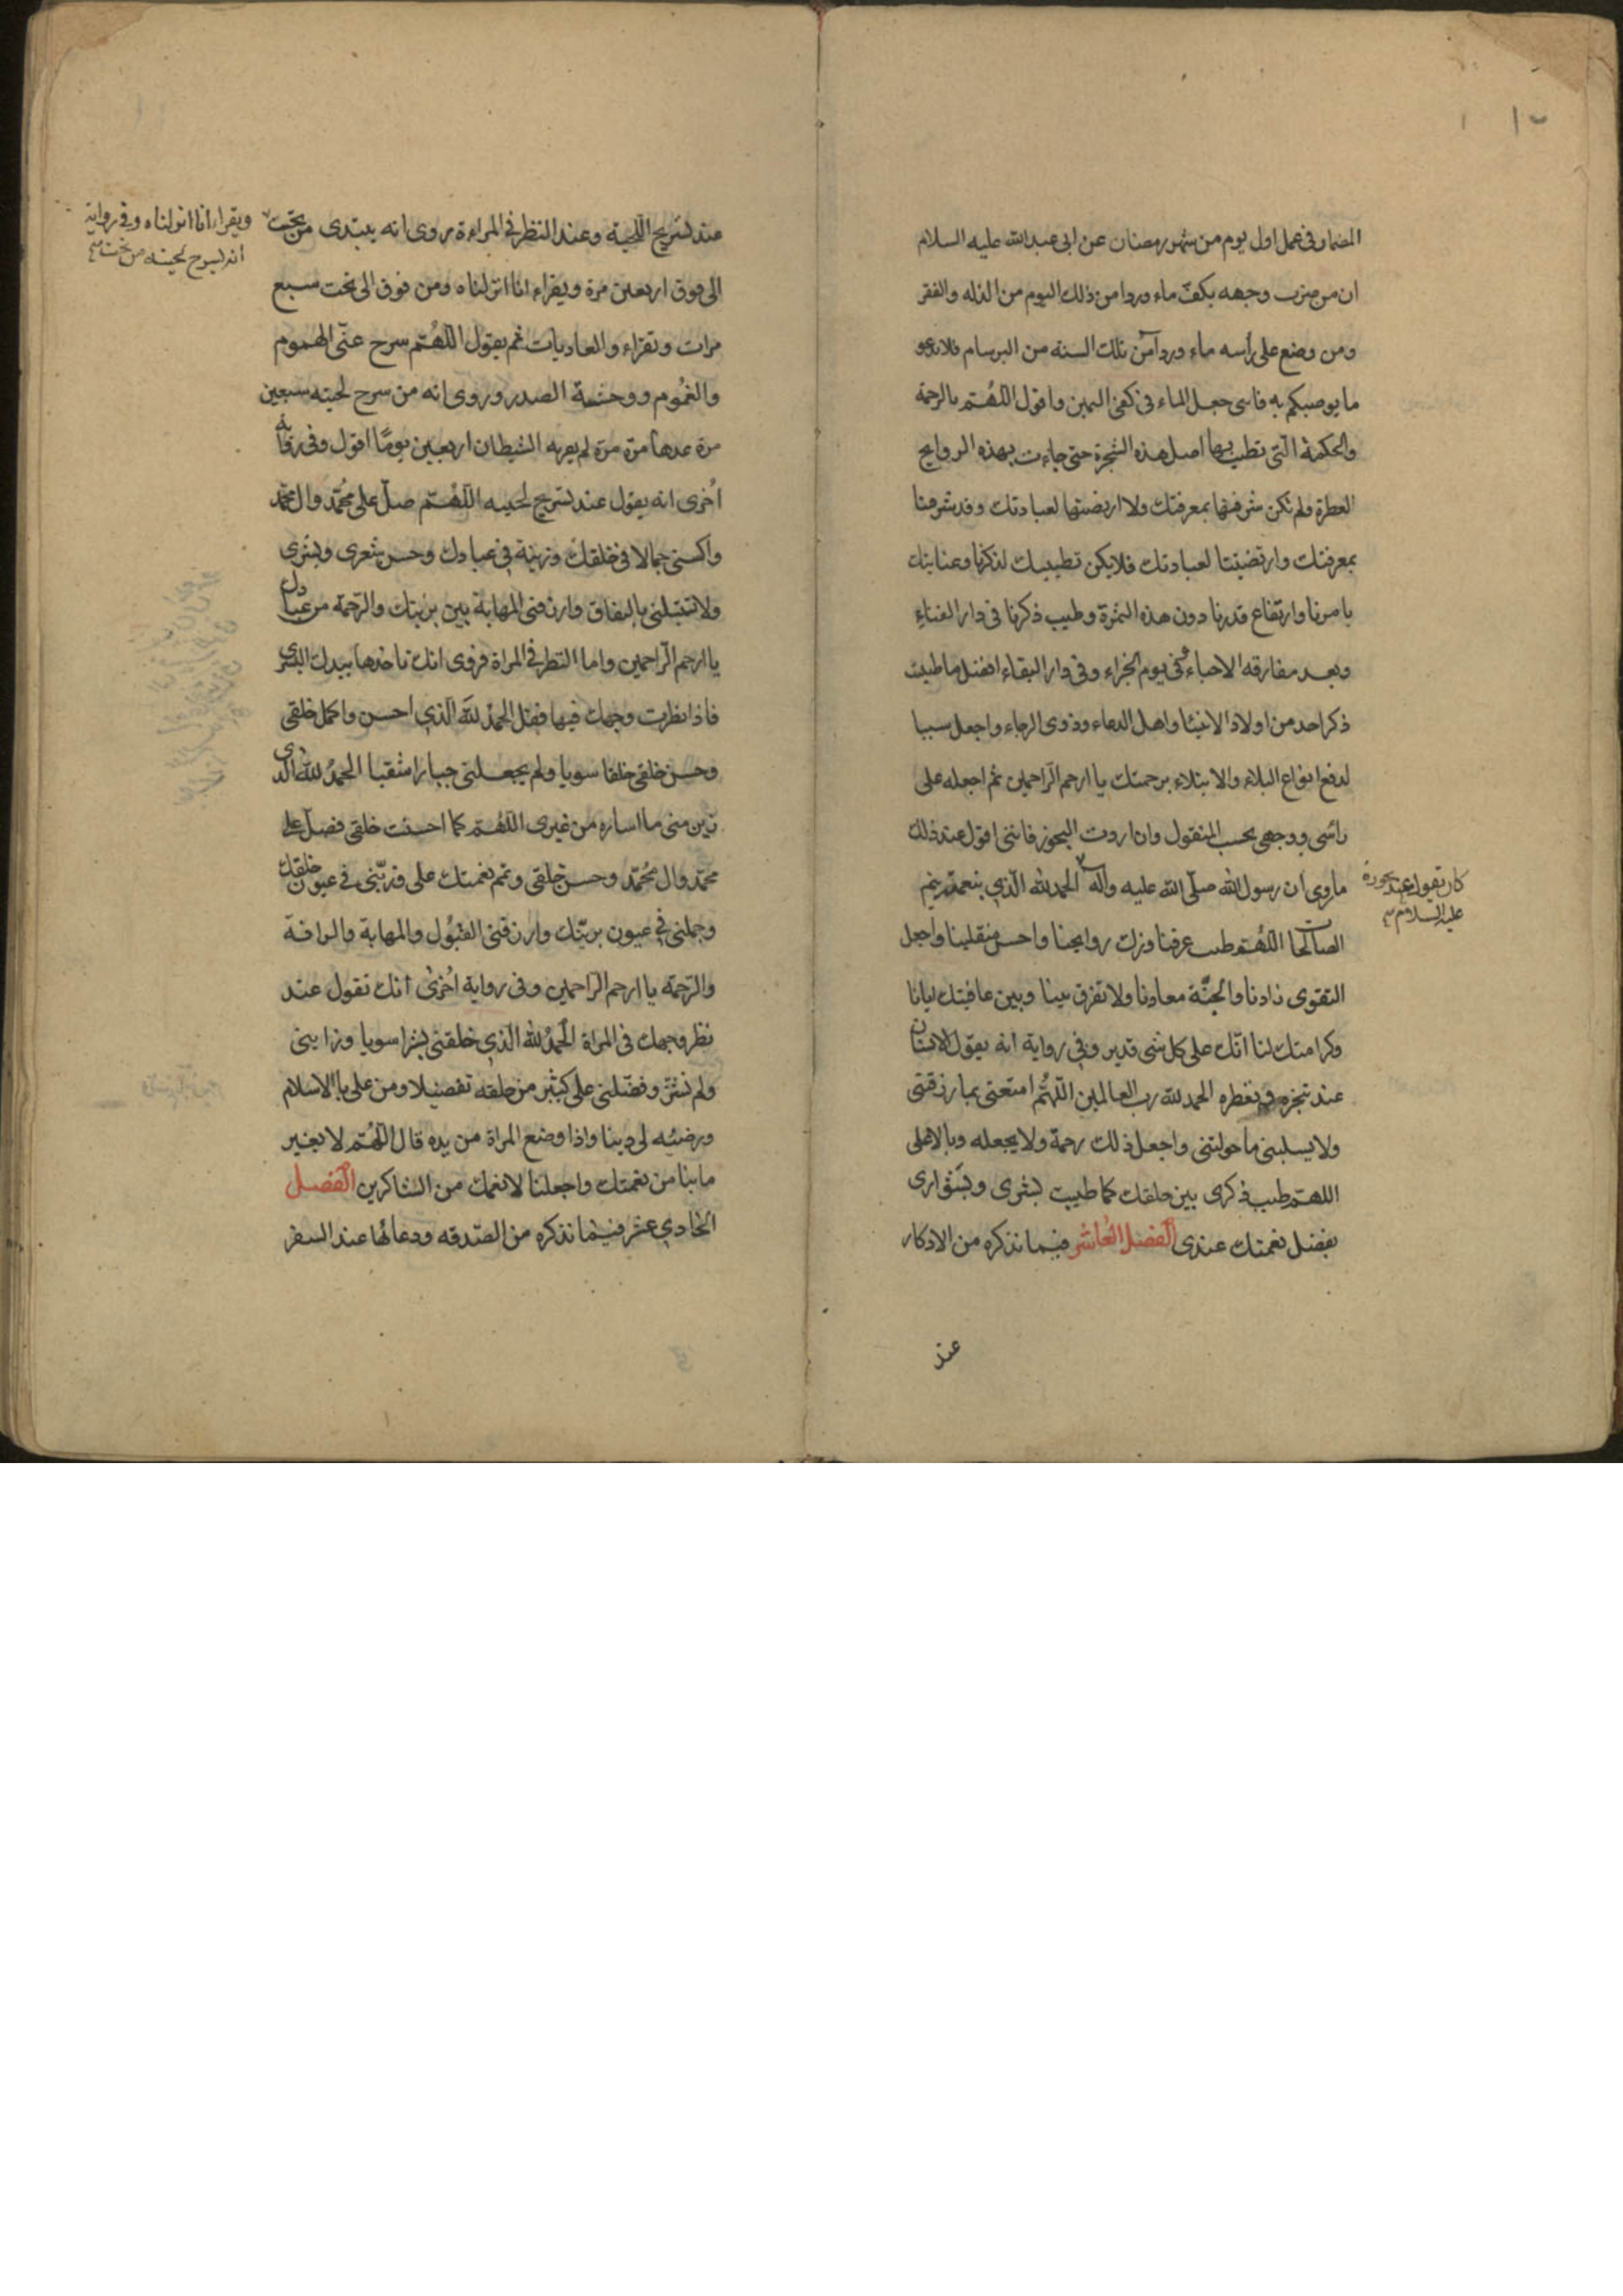 المضمار فى عمل اول يوم من شهر رمضان عن ابى عبدالله عليه السلام
ان من ضرب وجهه بكف ماء ورد امن ذلك اليوم من الذله والفقر
ومن وضع على رأسه ماء ورد آمن تلك السنة من البرسام فلا تدعو
ما يوصيكم به فاننى جعل الماء فى كفى اليمين واقول اللهم بالرحمة
والحكمة التى تطيب بها اصل هذه الشجرة حتى جاءت بهذه الروايح
العطرة ولم تكن شرفتها بمعرفتك ولا ارتضيتها لعبادتك وقد شرفتنا
بمعرفتك وارتضيتنا لعبادتك فلا يكن تطييبك لذكرنا وعنايتك
بامرنا وارتفاع قدرنا دون هذه الثمرة وطيب ذكرنا فى دار الفناء
وبعد مفارقه الاحباء وفى يوم الجزاء وفى دار البقاء افضل ما طيبت
ذكر احد من اولاد الانبيا واهل الدعاء وذوى الرجاء واجعل سببا
لدفع انواع البلاء والابتلاء برحمتك يا ارحم الراحمين ثم اجعله على
رأسى ووجهى بحسب المنقول وان اردت البخور فاننى اقول عند ذلك
ماروى ان رسول الله صلى الله عليه وآله الحمدلله الذي بنعمته تتم
كان يقول عند بخوره
عليه السلام
الصالحات اللهم طيب عرفنا وزك روايحنا واحسن منقلبنا واجعل
التقوى زادنا والجنة معادنا ولا تفرق بيننا وبين عافيتك ايانا
وكرامتك لنا انك على كل شى قدير وفى رواية انه يقول الانسان
عند تبخره وتعطره الحمد لله رب العالمين اللهم امتعنى بما رزقتنى
ولا يسلبنى ما خولتنى واجعل ذلك رحمة ولا يجعله وبالا على
اللهم طيب ذكرى بين خلقك كما طيبت بشرى ونشوارى
بفضل نعمتك عندى الفصل العاشر فيما نذكره من الاذكار
عند
عند تسريح اللحية وعند النظر فى المراءة روى انه يبتدى من تحت
الى فوق اربعين مرة ويقراء انا انزلناه ومن فوق الى تحت سبع
ويقراء انا انزلناه وفى رواية
انه يسرح لحيته من تحت
مرات وتقراء والعاديات ثم يقول اللهم سرح عنى الهموم
والغموم ووحشة الصدر وروى انه من سرح لحيته سبعين
مرة عدها مرة مرة لم يقربه الشيطان اربعين يومًا اقول وفى رواية
اخرى انه يقول عند تسريح لحيته اللهم صل على محمد وال محمد
واكسنى جمالا فى خلقك وزينة فى عبادك وحسن شعرى وبشرى
ولا تبتلنى بالنفاق وارزقنى المهابة بين بريتك والرحمة من عبادك
يا ارحم الراحمين واما النظر فى المراة فروى انك تاخذها بيدك اليسرى
فاذا نظرت وجهك فيها فقل الحمد لله الذي احسن واكمل خلقى
وحسن خلقى خلقا سويا ولم يجعلنى جبارا شقيا الحمد لله الذى
زين منى ما اساره من غيرى اللهم كما احسنت خلقى فصل على
محمد وال محمد وحسن خلقى وتمم نعمتك على وزينى فى عيون خلقك
وجملنى فى عيون بريتك وارزقنى القبول والمهابة والرافة
والرحمة يا ارحم الراحمين وفى رواية اخرى انك تقول عند
نظر وجهك فى المراة الحمد لله الذي خلقنى بشرا سويا وزاننى
ولم يشنى وفضلنى على كثير من خلقه تفضيلا ومن على بالاسلام
ورضيه لى دينا واذا وضع المراة من يده قال اللهم لا يغير
ما بنا من نعمتك واجعلنا لانعمك من الشاكرين الفصل
الحادي عشر فيما نذكره من الصدقه ودعائها عند السفر